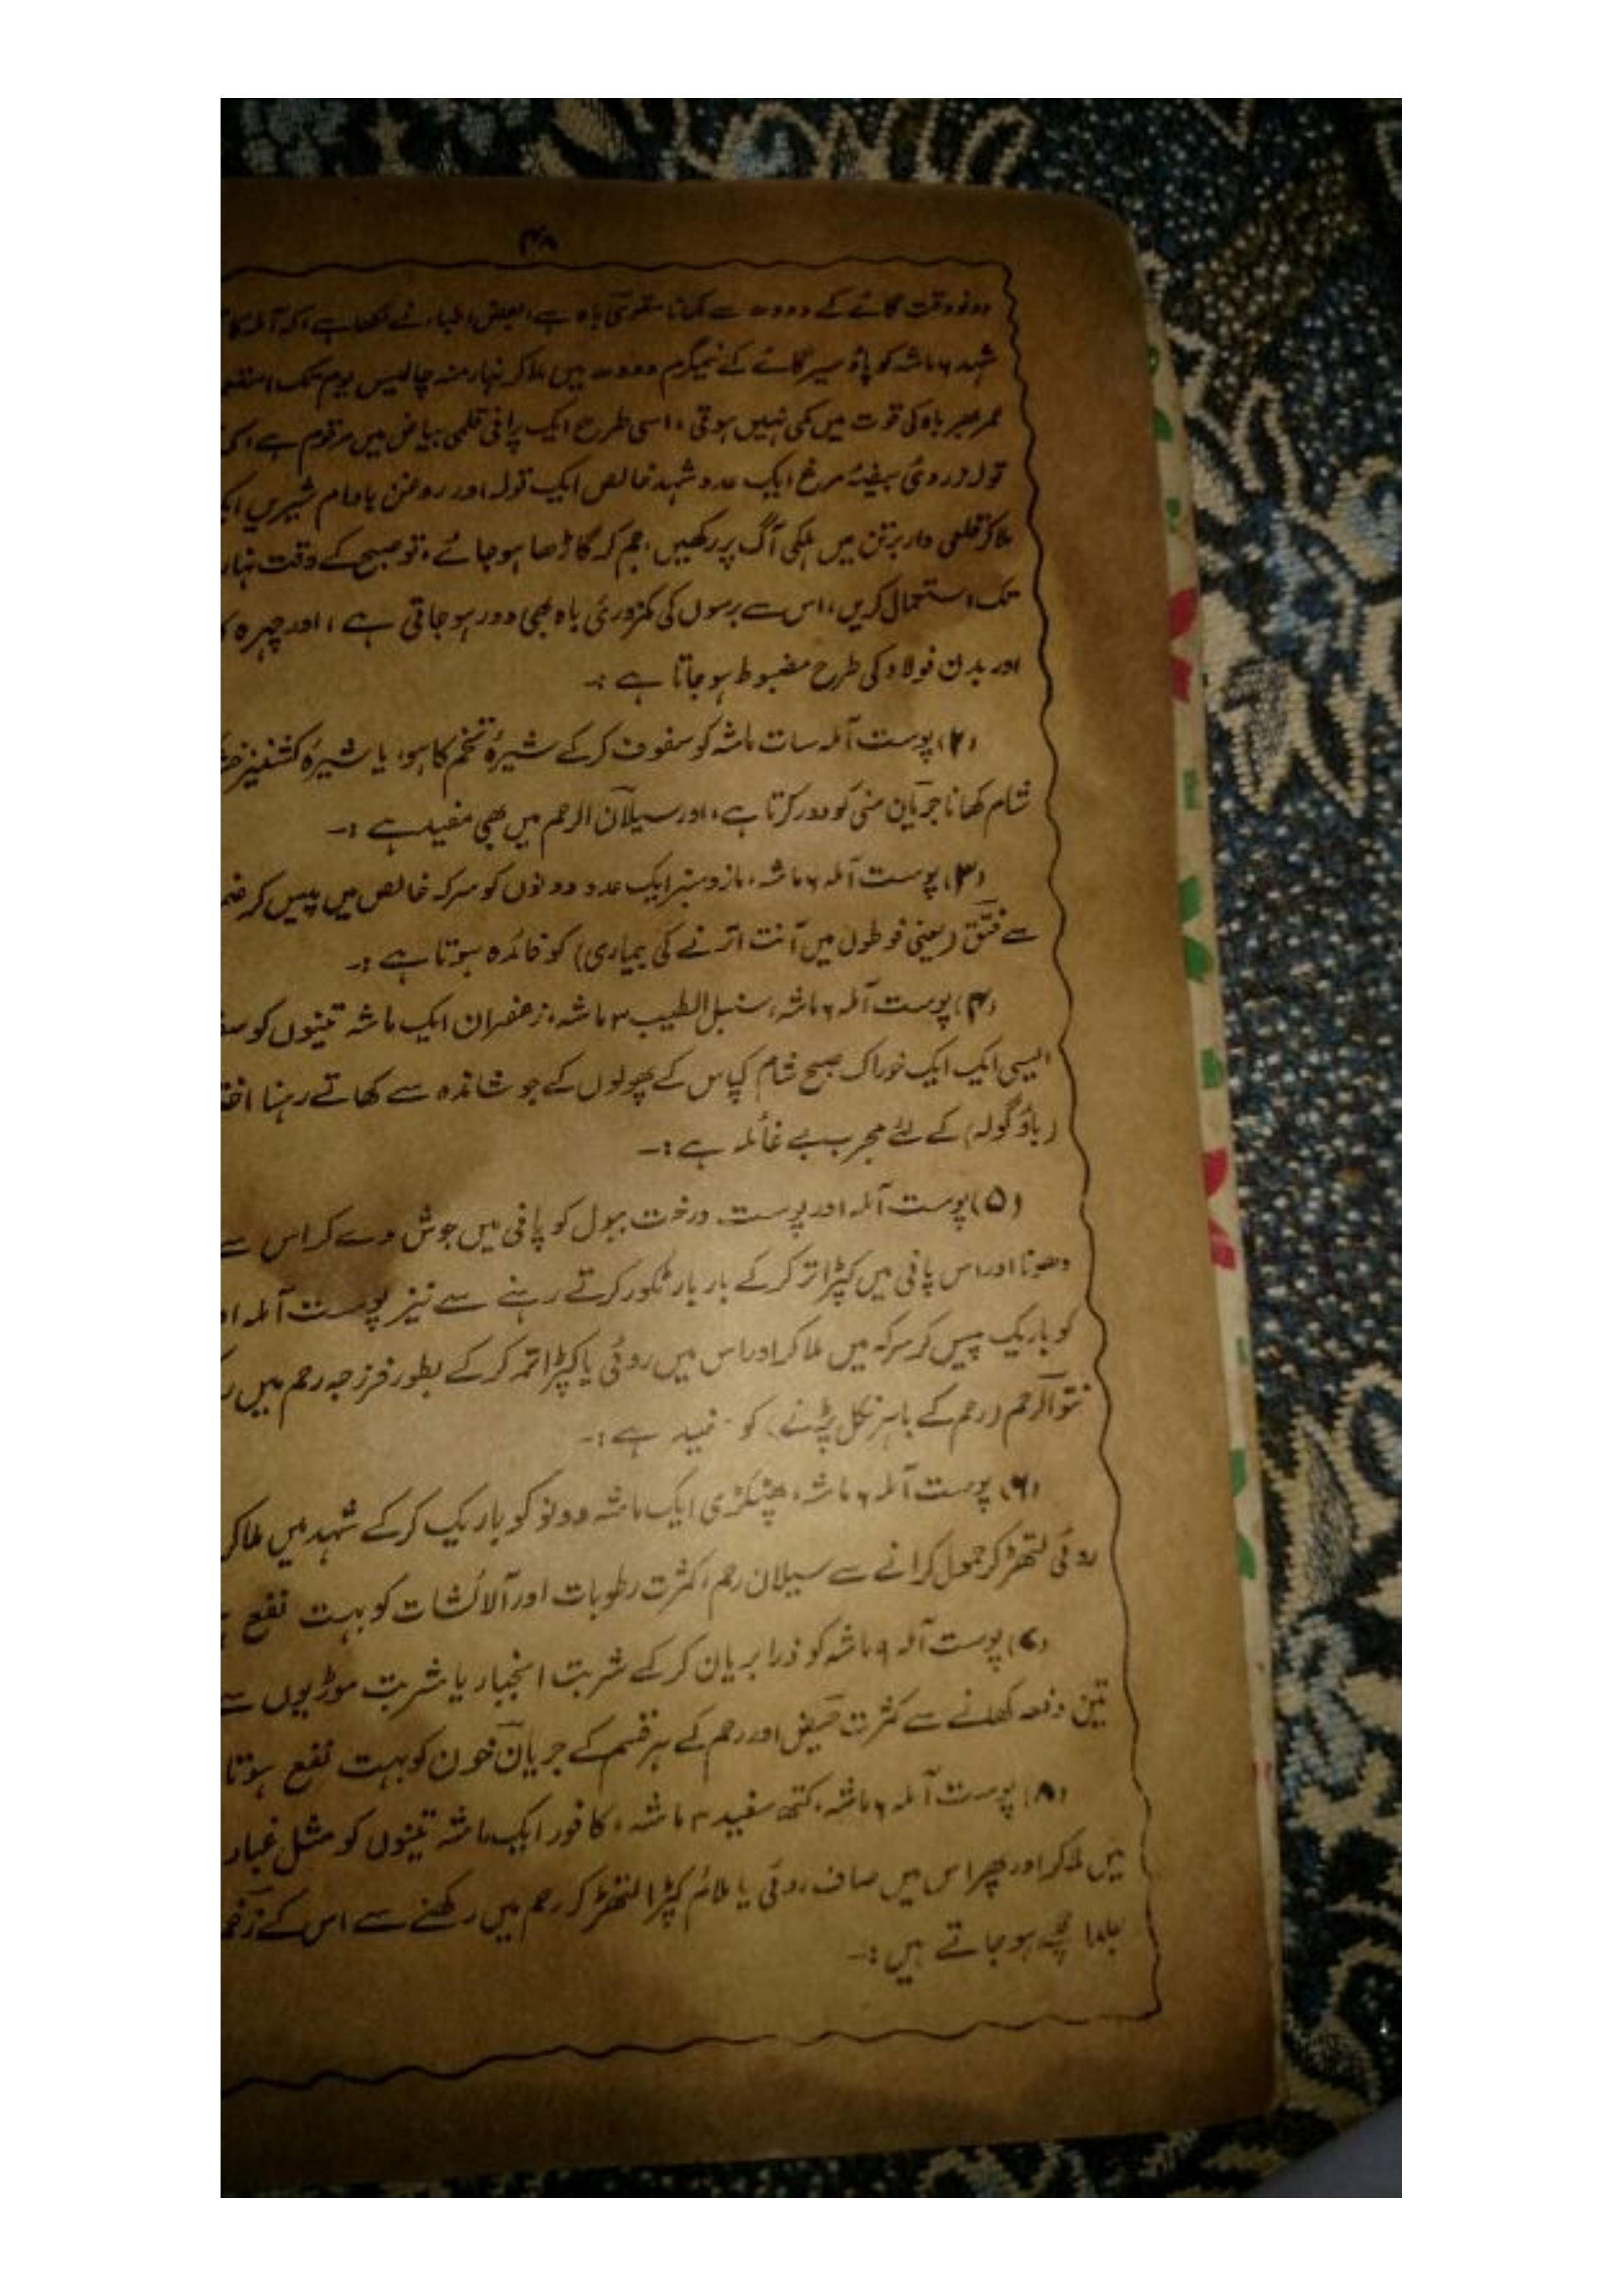 ۴۸
دونو وقت گائے کے دودھ سے کھانا مقوی باہ ہے، بعض اطباء نے لکھا ہے کہ آملہ کا
شہد ۶ ماشہ کو پاؤ سیر گائے کے نیمگرم دودھ میں ملا کر نہار منہ چالیس یوم تک
عمر بھر باہ کی قوت میں کمی نہیں ہوتی، اسی طرح ایک پرانی قلمی بیاض میں مرقوم ہے، کہ
تولہ زردیٔ بیضۂ مرغ ایک عدد شہد خالص ایک تولہ اور روغن بادام شیریں
ملا کر قلعی دار برتن میں ہلکی آگ پر رکھیں، جم کر گاڑھا ہو جائے، تو صبح کے وقت نہار
تک استعمال کریں، اس سے برسوں کی کمزوریٔ باہ بھی دور ہو جاتی ہے، اور چہرہ
اور بدن فولاد کی طرح مضبوط ہو جاتا ہے :۔
(۲) پوست آملہ سات ماشہ کو سفوف کر کے شیرۂ تخم کاہو، یا شیرۂ کشنیز
شام کھانا جریان منی کو دور کرتا ہے، اور سیلان الرحم میں بھی مفید ہے :۔
(۳) پوست آملہ ۶ ماشہ، مازو سبز ایک عدد دونوں کو سرکہ خالص میں پیس کر
سے فتق (یعنی فوطوں میں آنت اترنے کی بیماری) کو فائدہ ہوتا ہے :۔
(۴) پوست آملہ ۶ ماشہ، سنبل الطیب ۳ ماشہ، زعفران ایک ماشہ تینوں کو
ایسی ایک ایک خوراک صبح شام کپاس کے پھولوں کے جوشاندہ سے کھاتے رہنا
(باؤ گولہ) کے لئے مجرب بے غائلہ ہے :۔
(۵) پوست آملہ اور پوست درخت ببول کو پانی میں جوش دے کر اس سے
دھونا اور اس پانی میں کپڑا تر کر کے بار بار ٹکور کرتے رہنے سے نیز پوست آملہ
کو باریک پیس کر سرکہ میں ملا کر اور اس میں روئی یا کپڑا تر کر کے بطور فرزجہ رحم میں
نتوالرحم (رحم کے باہر نکل پڑنے) کو مفید ہے :۔
(۶) پوست آملہ ۶ ماشہ، پھٹکڑی ایک ماشہ دونو کو باریک کر کے شہد میں ملا کر
روئی لتھڑ کر حمول کرانے سے سیلان رحم، کثرت رطوبات اور آلائشات کو بہت نفع
(۷) پوست آملہ ۹ ماشہ کو ذرا بریان کر کے شربت انجبار یا شربت موڑیوں سے
تین دفعہ کھلانے سے کثرت حیض اور رحم کے ہر قسم کے جریان خون کو بہت نفع ہوتا
(۸) پوست آملہ ۶ ماشہ، کتھ سفید ۳ ماشہ، کافور ایک ماشہ تینوں کو مثل غبار
میں ملا کر اور پھر اس میں صاف روئی یا ملائم کپڑا لتھڑ کر رحم میں رکھنے سے اس کے زخم
جلد اچھے ہو جاتے ہیں :۔